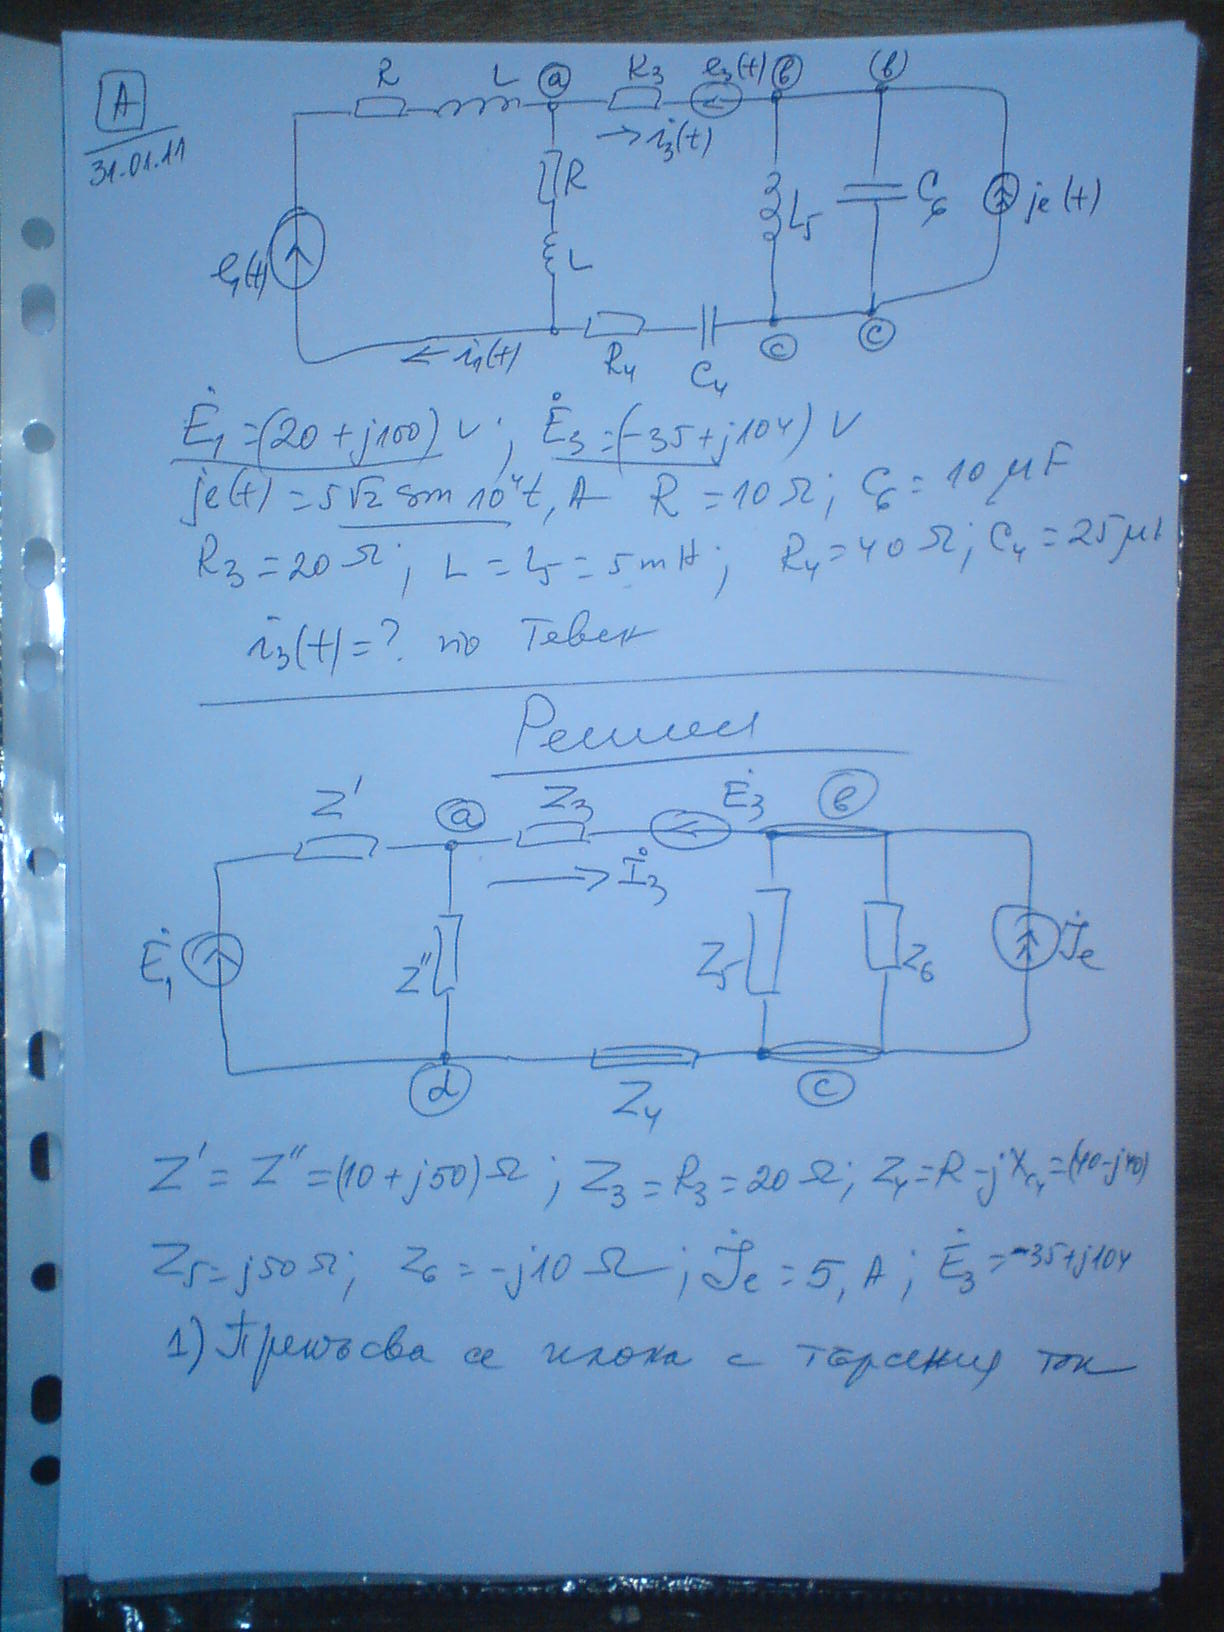 A
31.01.11
R L a R3 e3(t) b (b)
→ i3(t)
R
L5 C6 je(t)
e1(t) L
← i1(t) R4 C4 c c
Ė1=(20+j100) V; Ė3=(-35+j104) V
je(t)=5√2 sin 10⁴t, A R=10Ω; C6=10 μF
R3=20Ω; L=L5=5mH; R4=40Ω; C4=25μ
i3(t)=? по Тевен
Z' a Z3 Ė3 b
→ İ3
Ė1 Z'' Z5 Z6 J̇e
d Z4 c
Z'=Z''=(10+j50)Ω; Z3=R3=20Ω; Z4=R-jXc4=(40-j40)
Z5=j50Ω; Z6=-j10Ω; J̇e=5, A; Ė3=-35+j104
1) Прекъсва се клона с търсения ток